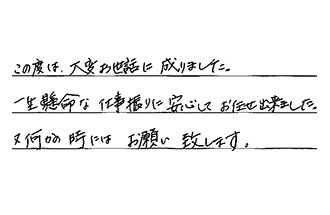 この度は、大変お世話に成りました。
一生懸命な仕事振りに安心してお任せ出来ました。
又何かの時にはお願い致します。